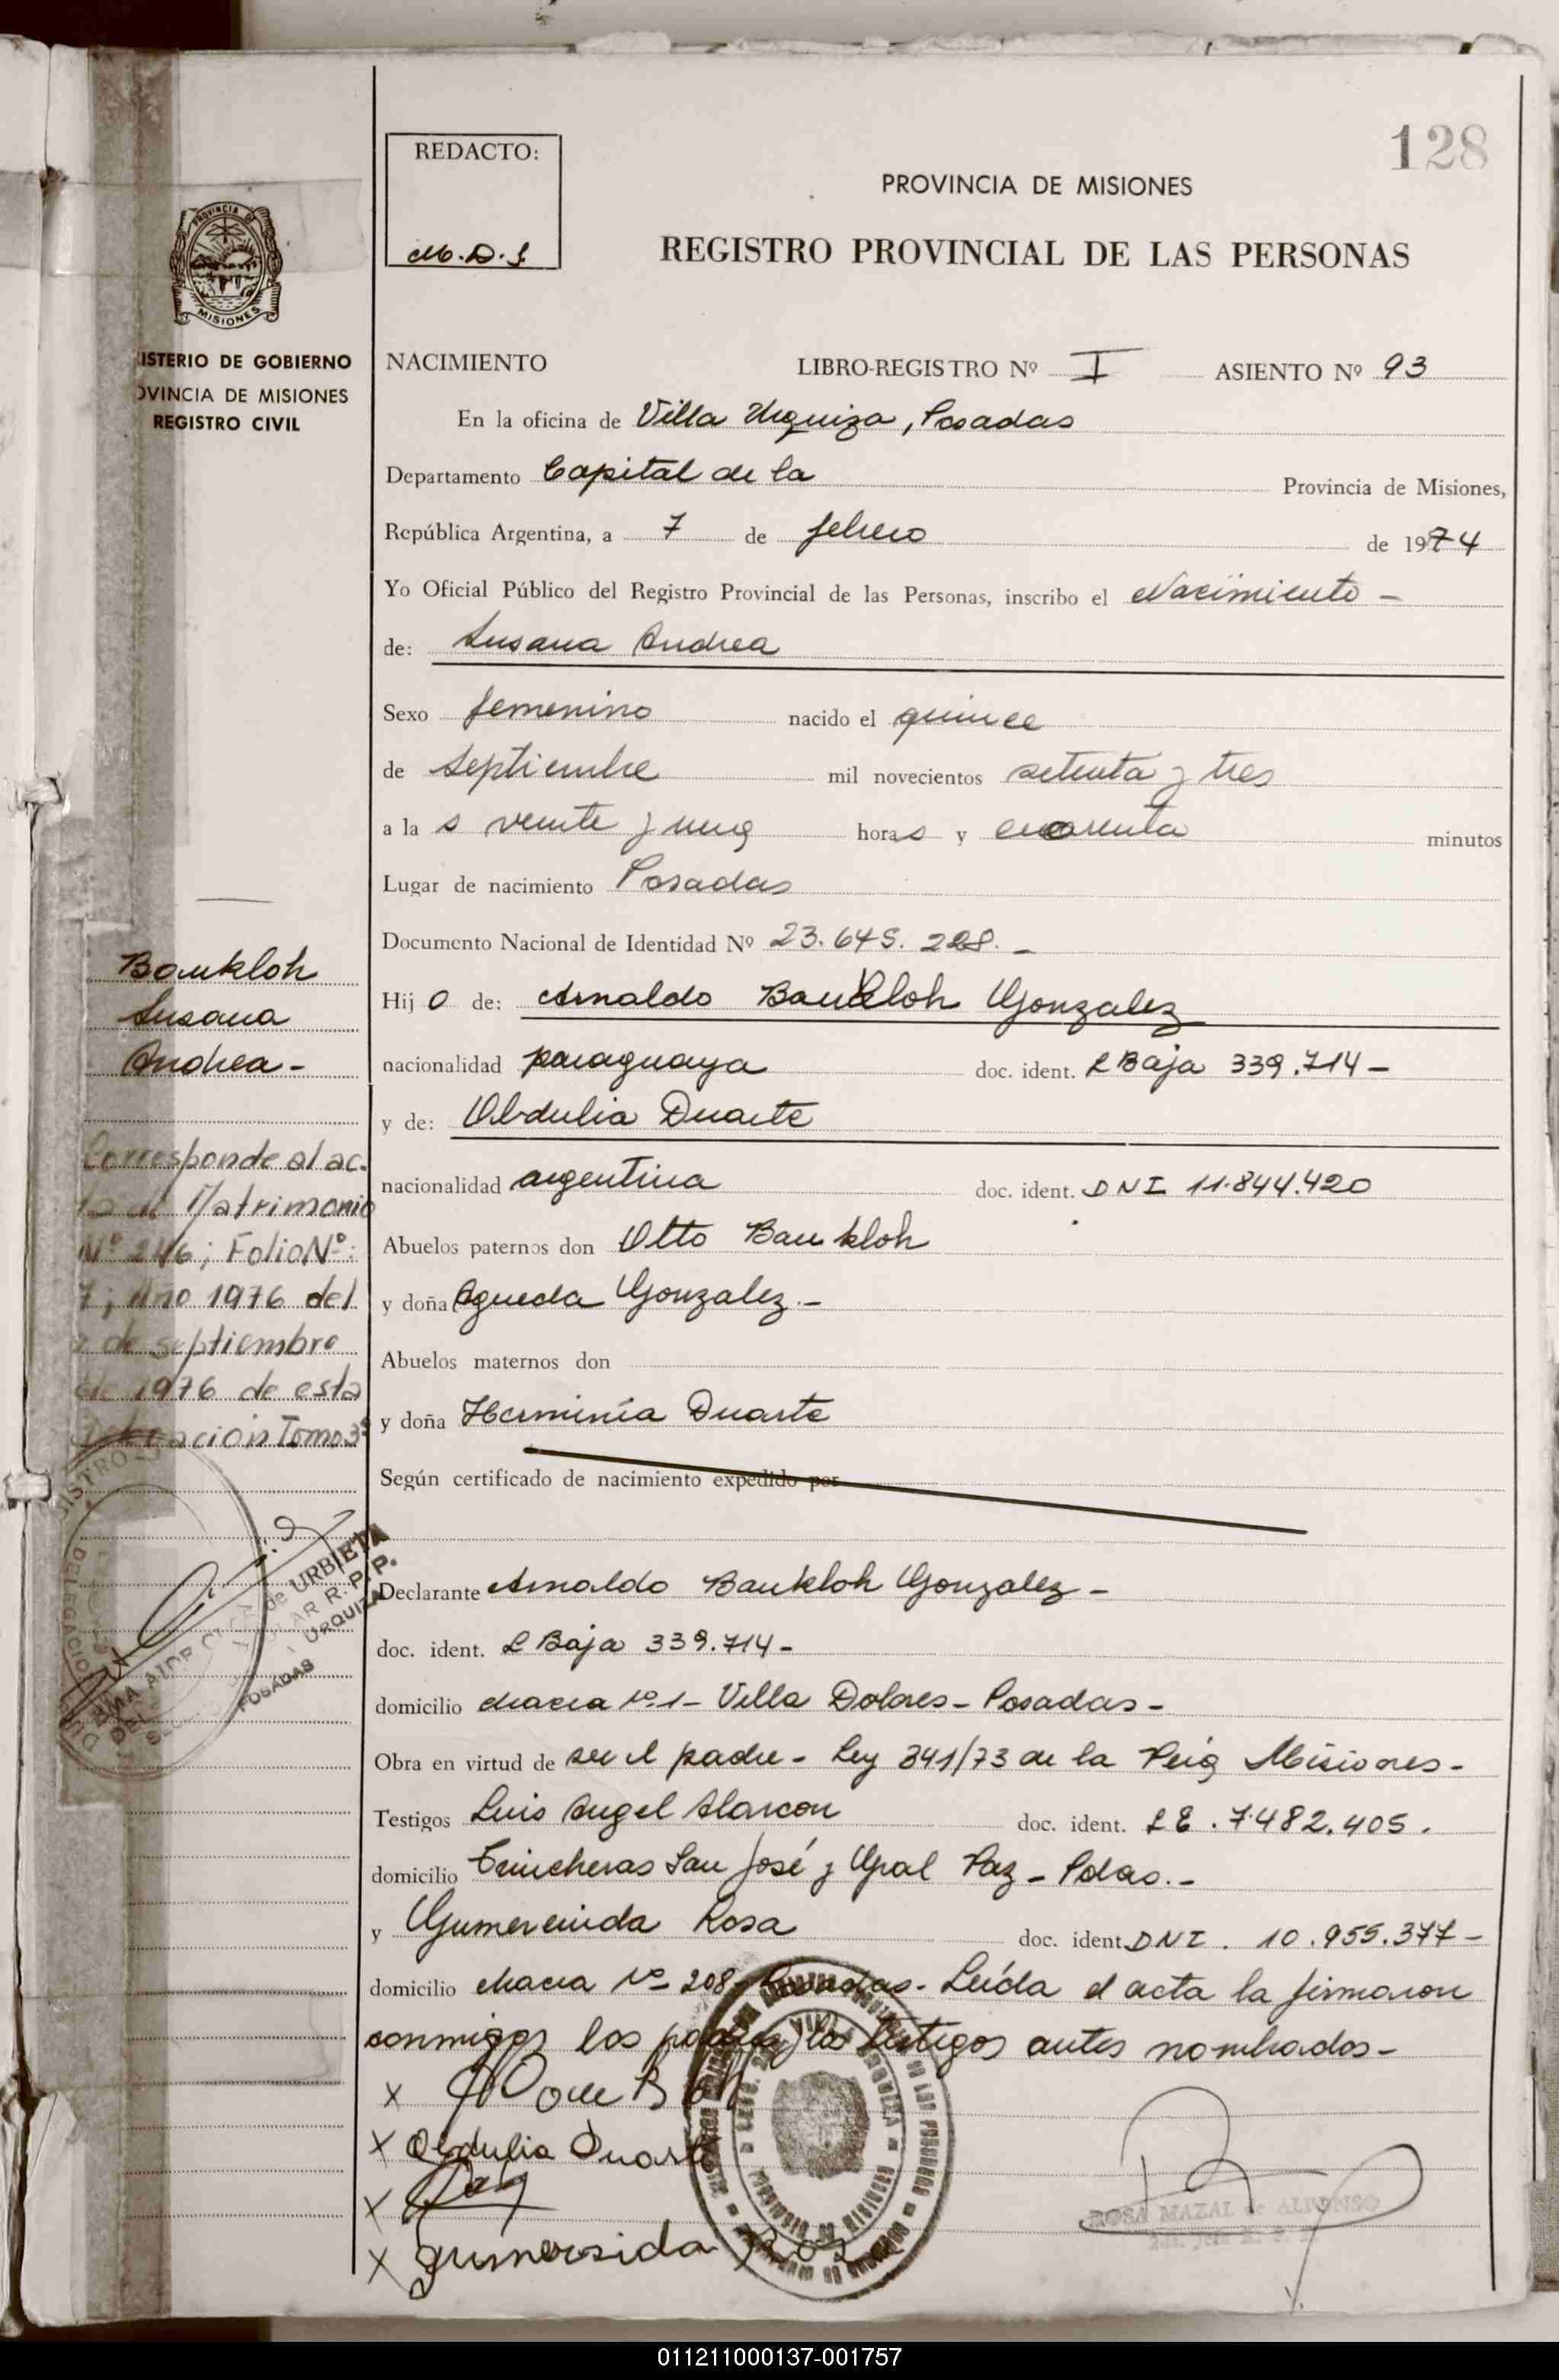 128
REDACTO:
M.D.S
PROVINCIA DE MISIONES
REGISTRO PROVINCIAL DE LAS PERSONAS
PROVINCIA DE
MISIONES
ISTERIO DE GOBIERNO
OVINCIA DE MISIONES
REGISTRO CIVIL
NACIMIENTO LIBRO-REGISTRO Nº I ASIENTO Nº 93
En la oficina de Villa Urquiza, Posadas
Departamento Capital de la Provincia de Misiones,
República Argentina, a 7 de febrero de 1974
Yo Oficial Público del Registro Provincial de las Personas, inscribo el Nacimiento -
de: Susana Andrea
Sexo femenino nacido el quince
de septiembre mil novecientos setenta y tres
a la s veinte y una horas y cuarenta minutos
Lugar de nacimiento Posadas
Documento Nacional de Identidad Nº 23.645.228.-
Hij a de: Arnaldo Baukloh Gonzalez
nacionalidad paraguaya doc. ident. R Baja 339.714-
y de: Obdulia Duarte
nacionalidad argentina doc. ident. DNI 11.844.420
Abuelos paternos don Otto Baukloh
y doña Agueda Gonzalez.-
Abuelos maternos don
y doña Herminia Duarte
Según certificado de nacimiento expedido por
Declarante Arnaldo Baukloh Gonzalez-
doc. ident. R Baja 339.714-
domicilio chacra Nº1- Villa Dolores- Posadas-
Obra en virtud de ser el padre- Ley 341/73 de la Pcia Misiones-
Testigos Luis Angel Alarcon doc. ident. LE. 7.482.405.
domicilio Trincheras San José y Gral Paz- Pdas.-
y Gumercinda Rosa doc. ident. DNI. 10.955.377-
domicilio chacra Nº 208- Posadas- Leída el acta la firmaron
conmigo los padres y los testigos antes nombrados-
x
x Obdulia Duarte
x
x Gumersida Rosa
ROSA MAZAL de ALFONSO
Baukloh
Susana
Andrea-
Corresponde al ac-
ta de Matrimonio
Nº 246; Folio Nº:
7; Año 1976 del
2 de septiembre
de 1976 de esta
Delegación Tomo 3º
de URBIETA
R. P. P.
URQUIZA
POSADAS
011211000137-001757